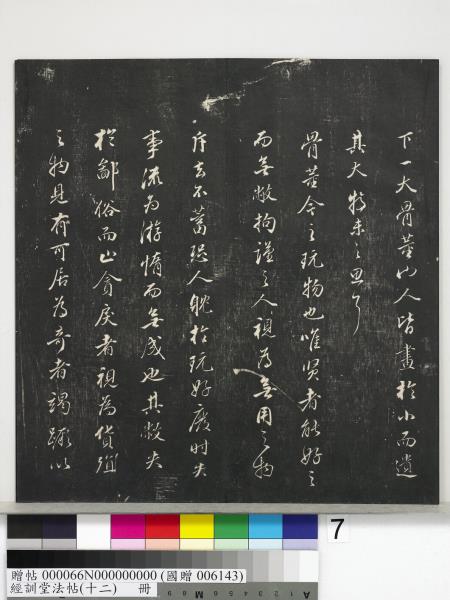 下一大骨董也人皆盡於小而遺
其大特未之思耳
骨董今之玩物也唯賢者能好之
而無敝拘謹之人視為無用之物
斥去不蓄恐人躭於玩好廢時失
事流為游惰而無成也其敝失
於鄙俗而凶貪戾者視為貨殖
之物見有可居為奇者竭蹶以
7
贈帖 000066N000000000 (國贈 006143)
經訓堂法帖(十二) 冊